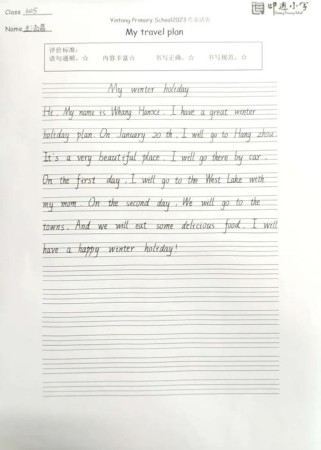 Class 605
Xintang Primary School2023
Name
My travel plan
评价标准:
语句通顺。☆ 内容丰富☆ 书写正确。☆ 书写规范。☆
My winter holiday
Hi. My name is Whang Hanxi. I have a great winter
holiday plan. On January 20 th, I will go to Hang zhou.
It's a very beautiful place. I well go there by car.
On the first day, I well go to the West Lake with
my mom. On the second day, We well go to the
towns. And we will eat some delicious food. I well
have a happy winter holiday!